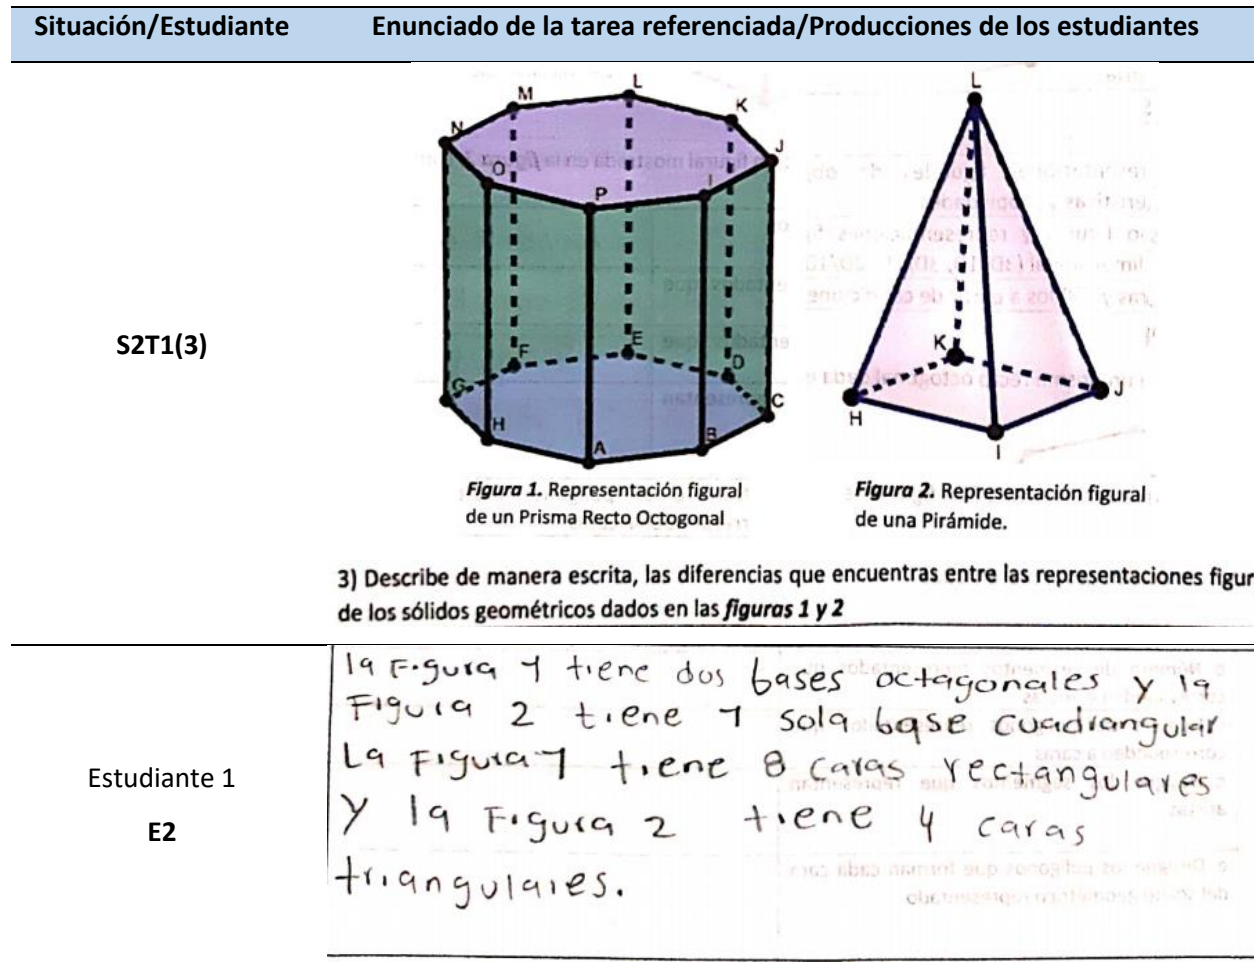 Situación/Estudiante Enunciado de la tarea referenciada/Producciones de los estudiantes
S2T1(3)
L
M
K
N
J
O
P
I
F
E
D
G
C
H
B
A
L
K
J
H
I
Figura 1. Representación figural
de un Prisma Recto Octogonal
Figura 2. Representación figural
de una Pirámide.
3) Describe de manera escrita, las diferencias que encuentras entre las representaciones figur
de los sólidos geométricos dados en las figuras 1 y 2
Estudiante 1
E2
la Figura 1 tiene dos bases octagonales y la
Figura 2 tiene 1 sola base cuadrangular
La Figura 1 tiene 8 caras rectangulares
y la Figura 2 tiene 4 caras
triangulares.